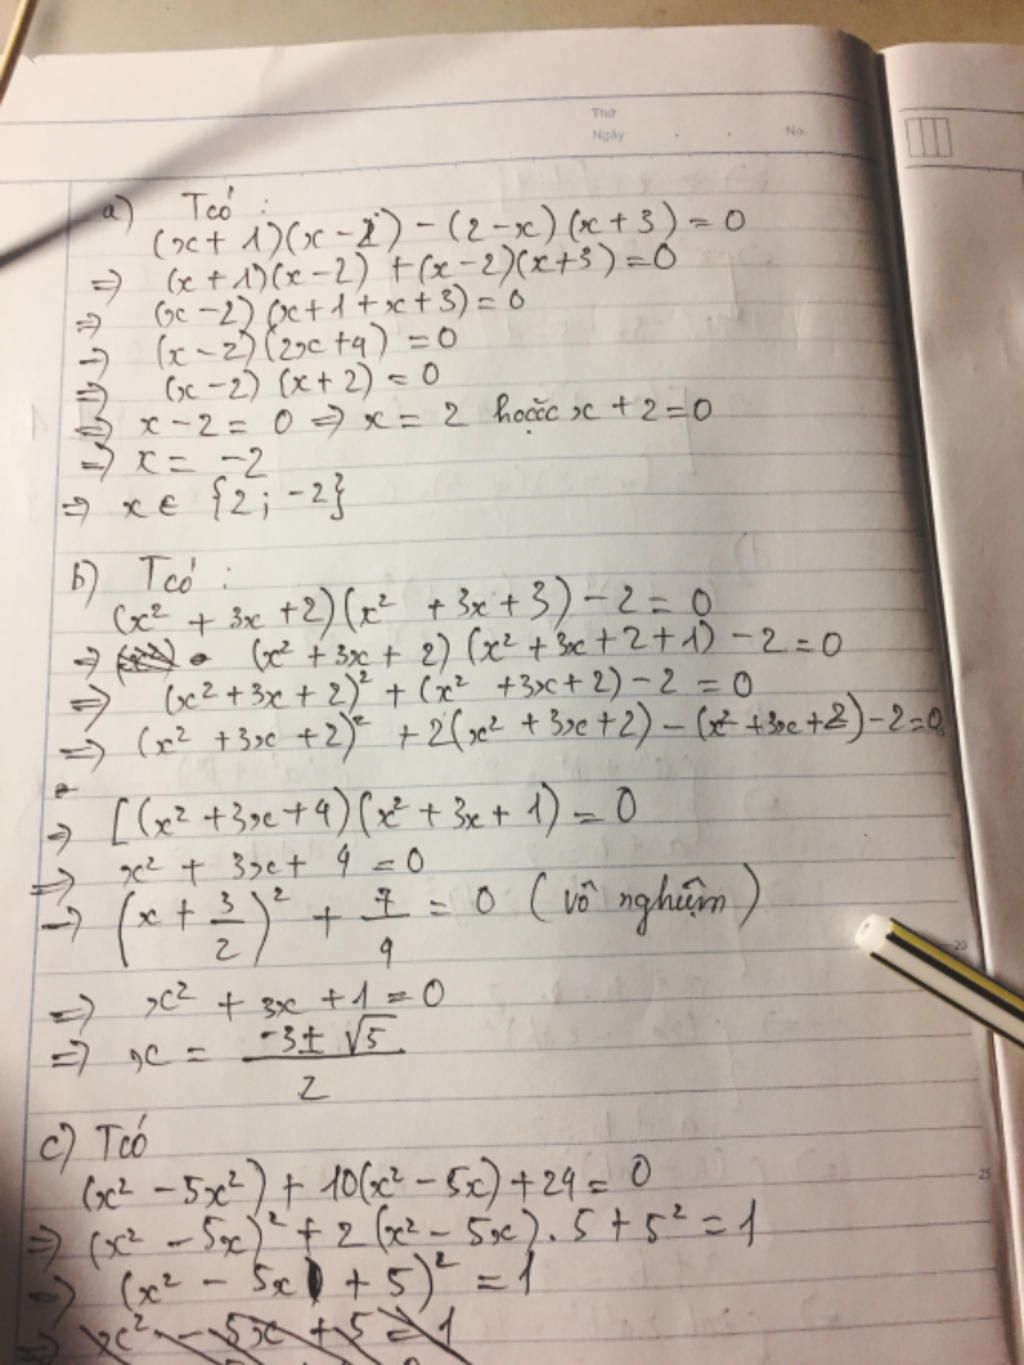 Thứ
Ngày . . No.
a) Tcó :
(x + 1)(x - 2) - (2 - x)(x + 3) = 0
=> (x + 1)(x - 2) + (x - 2)(x + 3) = 0
=> (x - 2)(x + 1 + x + 3) = 0
=> (x - 2)(2x + 4) = 0
=> (x - 2)(x + 2) = 0
=> x - 2 = 0 => x = 2 hoặc x + 2 = 0
=> x = -2
=> x ∈ {2 ; -2}
b) Tcó :
(x² + 3x + 2)(x² + 3x + 3) - 2 = 0
=> (x² + 3x + 2)(x² + 3x + 2 + 1) - 2 = 0
=> (x² + 3x + 2)² + (x² + 3x + 2) - 2 = 0
=> (x² + 3x + 2)² + 2(x² + 3x + 2) - (x² + 3x + 2) - 2 = 0
=> [(x² + 3x + 4)(x² + 3x + 1) = 0
=> x² + 3x + 4 = 0
=> (x + 3/2)² + 7/4 = 0 (vô nghiệm)
=> x² + 3x + 1 = 0
=> x = (-3 ± √5)/2
20
c) Tcó
(x² - 5x²) + 10(x² - 5x) + 24 = 0
25
=> (x² - 5x)² + 2(x² - 5x) . 5 + 5² = 1
=> (x² - 5x + 5)² = 1
=> x² - 5x + 5 = 1